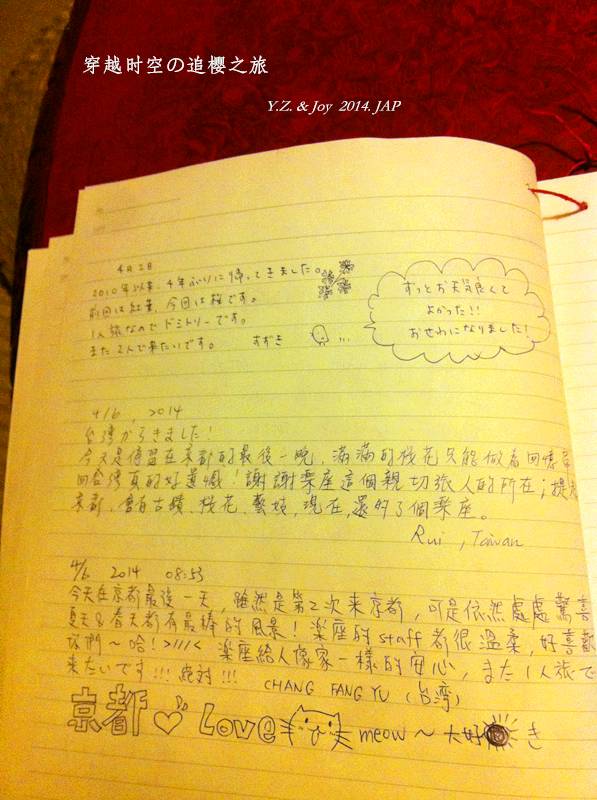 穿越时空の追樱之旅
Y.Z. & Joy 2014. JAP
4月2日
2010年以来、4年ぶりに帰ってきました。
前回は紅葉、今回は桜です。
1人旅なので ドミトリーです。
また 2人で来たいです。 すずき
ずっとお天気良くて
よかった!!
おせわになりました!
4/6 , 2014
台湾からきました!
今天是停留在京都的最後一晚，滿滿的桜花只能做為回憶帶
回台湾真的好遺憾！謝謝楽座這個親切旅人的所在；提起
京都，會有古蹟、桜花、藝妓，現在，還多了個楽座。
Rui , Taiwan
4/6 2014 08:53
今天在京都最後一天，雖然是第2次来京都，可是依然處處驚喜
夏天&春天都有最棒的風景！楽座的staff都很溫柔，好喜歡
你們～哈！>////< 楽座給人像家一樣的安心，また1人旅で
来たいです!!! 絶対!!!
CHANG FANG YU (台湾)
京都 Love meow～大好き